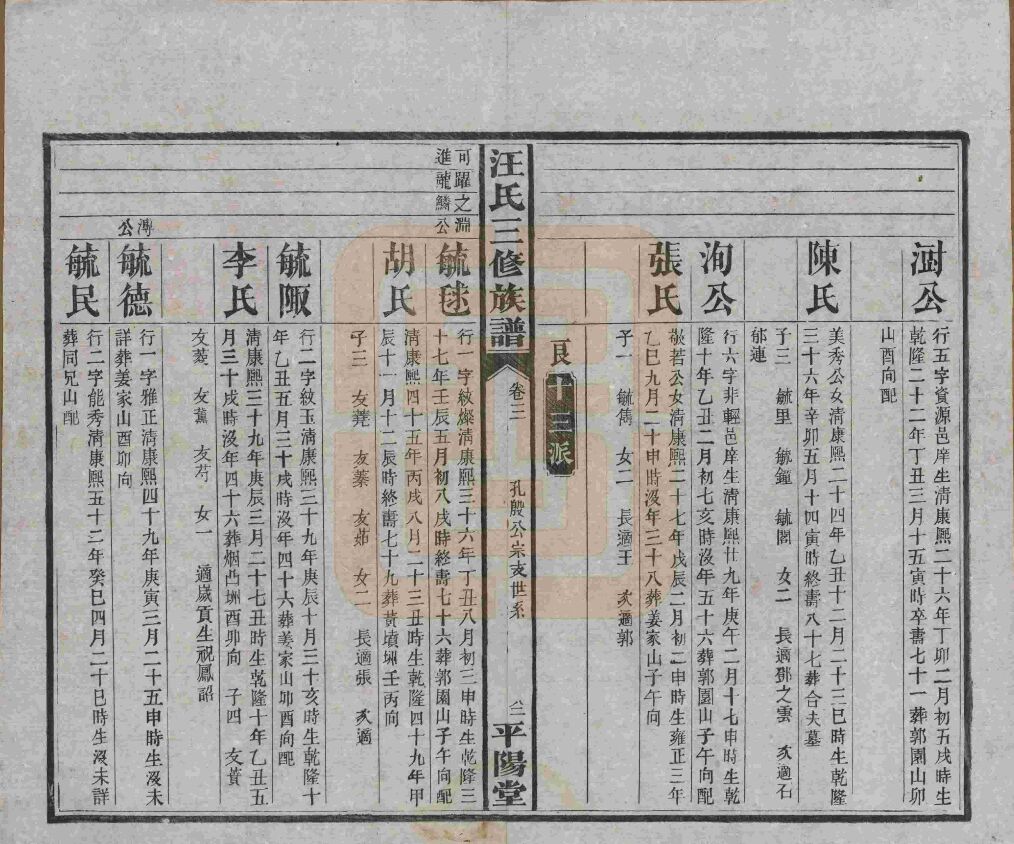 澍公
行五字資源邑庠生清康熙二十六年丁卯二月初五戌時生
乾隆二十二年丁丑三月十五寅時卒壽七十一葬郭園山卯
山酉向配
陳氏
美秀公女清康熙二十四年乙丑十二月二十三巳時生乾隆
三十六年辛卯五月十四寅時終壽八十七葬合夫墓
子三 毓里 毓鐘 毓閣 女二 長適鄧之雲 次適石
郁連
洵公
行六字非輕邑庠生清康熙廿九年庚午二月十七申時生乾
隆十年乙丑二月初七亥時沒年五十六葬郭園山子午向配
張氏
敬若公女清康熙二十七年戊辰二月初二申時生雍正三年
乙巳九月二十申時沒年三十八葬姜家山子午向
子一 毓儁 女二 長適王 次適郭
艮
十三派
汪氏三修族譜
卷三
孔殷公宗支世系
八二
平陽堂
可躍之淵
進龍鱗公
毓毬
行一字紋燦清康熙三十六年丁丑八月初三申時生乾隆三
十七年壬辰五月初八戌時終壽七十六葬郭園山子午向配
胡氏
清康熙四十五年丙戌八月二十三丑時生乾隆四十九年甲
辰十一月十二辰時終壽七十九葬黃墳塝壬丙向
子三 友蕘 友蓁 友茆 女二 長適張 次適
毓陬
行二字紋玉清康熙三十九年庚辰十月三十亥時生乾隆十
年乙丑五月三十戌時沒年四十六葬姜家山卯酉向配
李氏
清康熙三十九年庚辰三月二十七丑時生乾隆十年乙丑五
月三十戌時沒年四十六葬烟凸坤酉卯向 子四 友蕡
友菱 友薰 友芍 女一 適歲貢生祝鳳詔
漙公
毓德
行一字雅正清康熙四十九年庚寅三月二十五申時生沒未
詳葬姜家山酉卯向
毓民
行二字能秀清康熙五十二年癸巳四月二十巳時生沒未詳
葬同兄山配